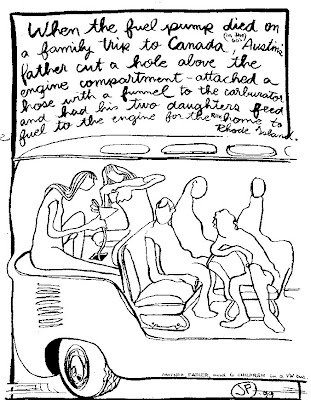 When the fuel pump died on
a family trip to Canada (in the 60s), Austin's
father cut a hole above the
engine compartment - attached a
hose with a funnel to the carburator
and had his two daughters feed
fuel to the engine for the ride home to
Rhode Island.
MOTHER, FATHER, and 6 CHILDREN in a VW bus
JP 99